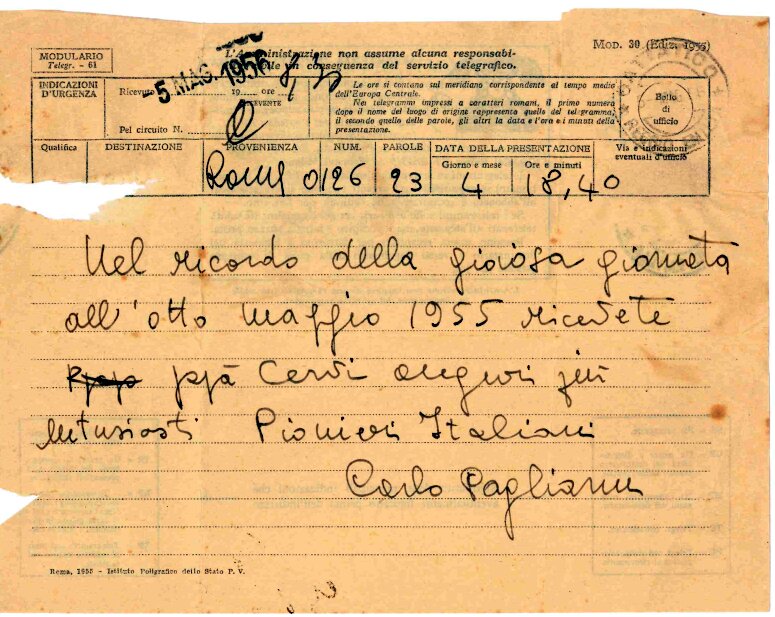 MODULARIO
Telegr. - 61
L'Amministrazione non assume alcuna responsabi-
conseguenza del servizio telegrafico.
MOD. 30 (Ediz. 1955)
INDICAZIONI
D'URGENZA
5 MAG. 1956
Ricevuto 19 ore
RICEVENTE
Pel circuito N.
Le ore si contano sul meridiano corrispondente al tempo medio
dell'Europa Centrale.
Nei telegrammi impressi a caratteri romani, il primo numero
dopo il nome del luogo di origine rappresenta quello del telegramma,
il secondo quello delle parole, gli altri la data e l'ora e i minuti della
presentazione.
Bollo
di
ufficio
Qualifica DESTINAZIONE PROVENIENZA NUM. PAROLE DATA DELLA PRESENTAZIONE
Giorno e mese Ore e minuti
Via e indicazioni
eventuali d'ufficio
Roma 0126 23 4 18,40
Nel ricordo della gioiosa giornata
all'otto maggio 1955 ricevete
ppà Cervi auguri più
entusiasti Pionieri Italiani
Carlo Pagliarini
Roma, 1955 - Istituto Poligrafico dello Stato P. V.